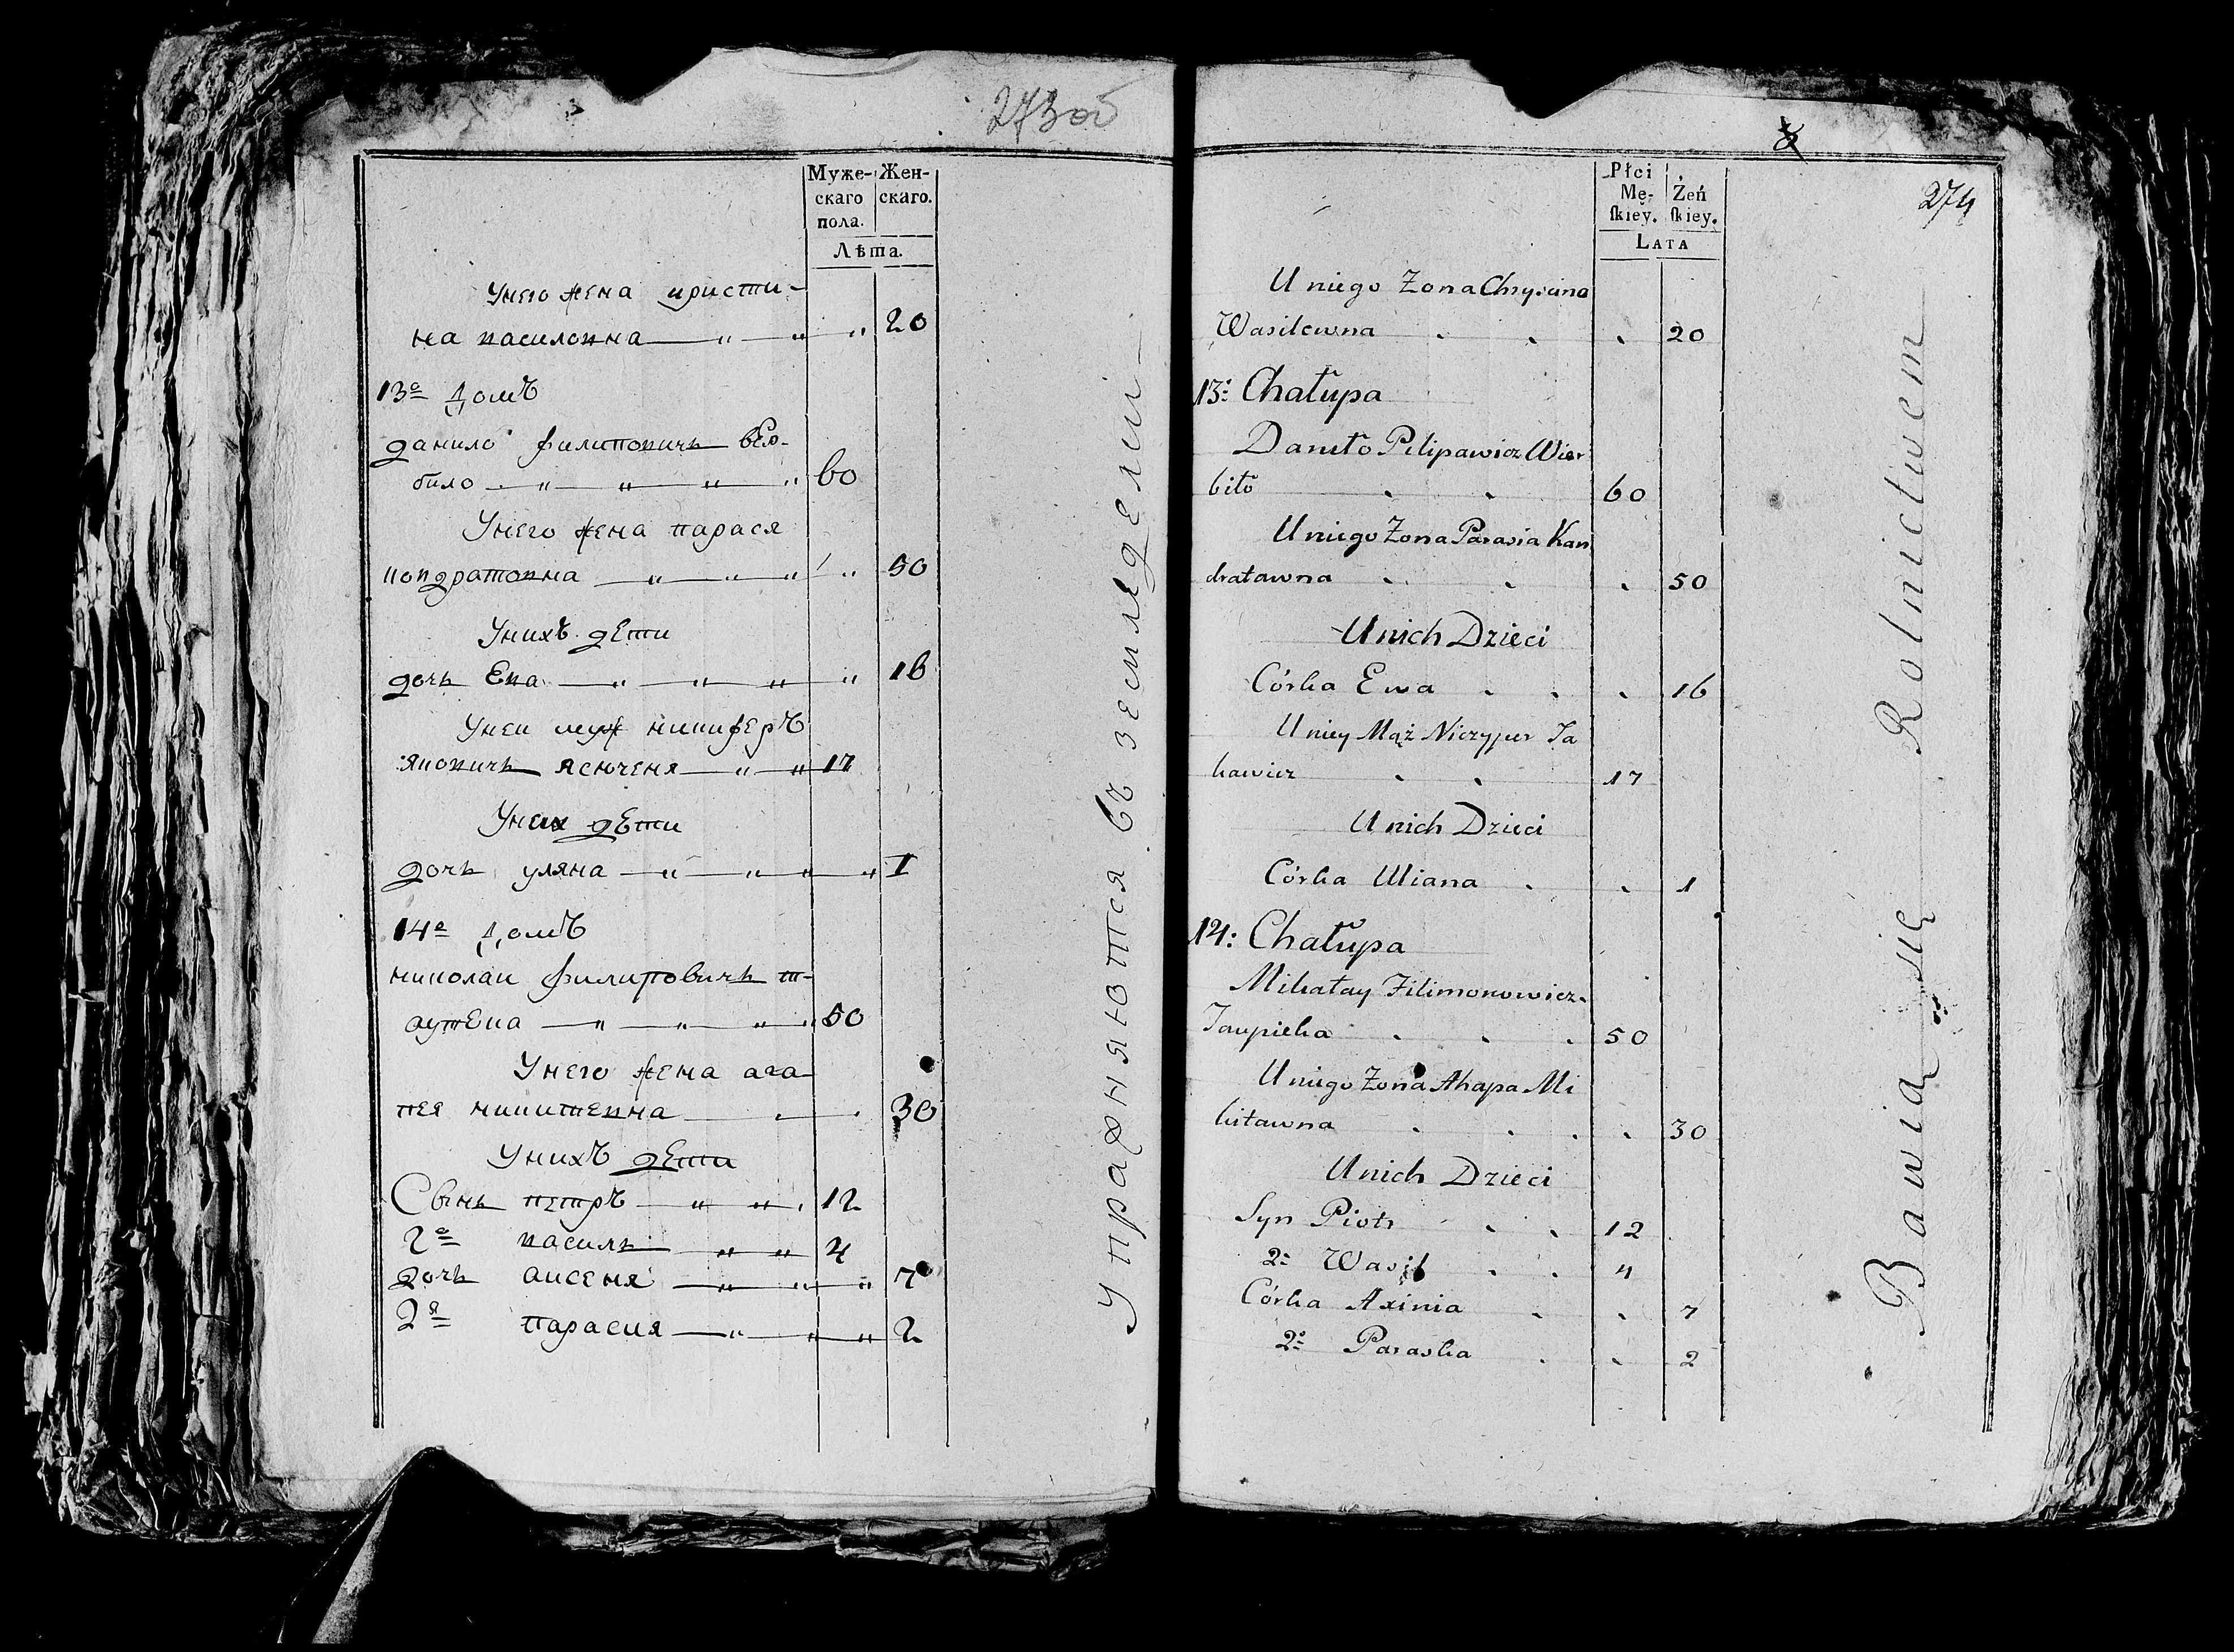 273 об
Муже- Жен-
скаго скаго.
пола.
Лѣта.
Унего жена кристи-
на василовна 20
13е домъ
данило филиповичь вер-
било 60
Унего жена парася
кондратовна 50
Унихъ дети
дочь Ева 16
Унеи муж никиферъ
яковичь ясюченя 17
Уних дѣти
дочь уляна 1
14е домъ
николаи филиповичь
50
Унего жена ага-
пея никитевна 30
Унихъ дети
Сынь петръ 12
2е василь 4
дочь аксеня 7
2я параска 2
Упражняются въ земледелии
274
Płci
Mę- Żeń
skiey. skiey.
LATA
U niego Żona Chrysina
Wasilewna 20
13: Chałupa
Daniło Pilipawicz Wier
biło 60
U niego Żona Parasia Kan
dratawna 50
U nich Dzieci
Córka Ewa 16
U niey Mąż Niczypur Ja
kawicz 17
U nich Dzieci
Córka Uliana 1
14: Chałupa
Mikałay Filimonowicz
50
U niego Żona Ahapa Mi
kitawna 30
U nich Dzieci
Syn Piotr 12
2: Wasil 4
Córka Axinia 7
2: Paraska 2
Bawią się Rolnictwem